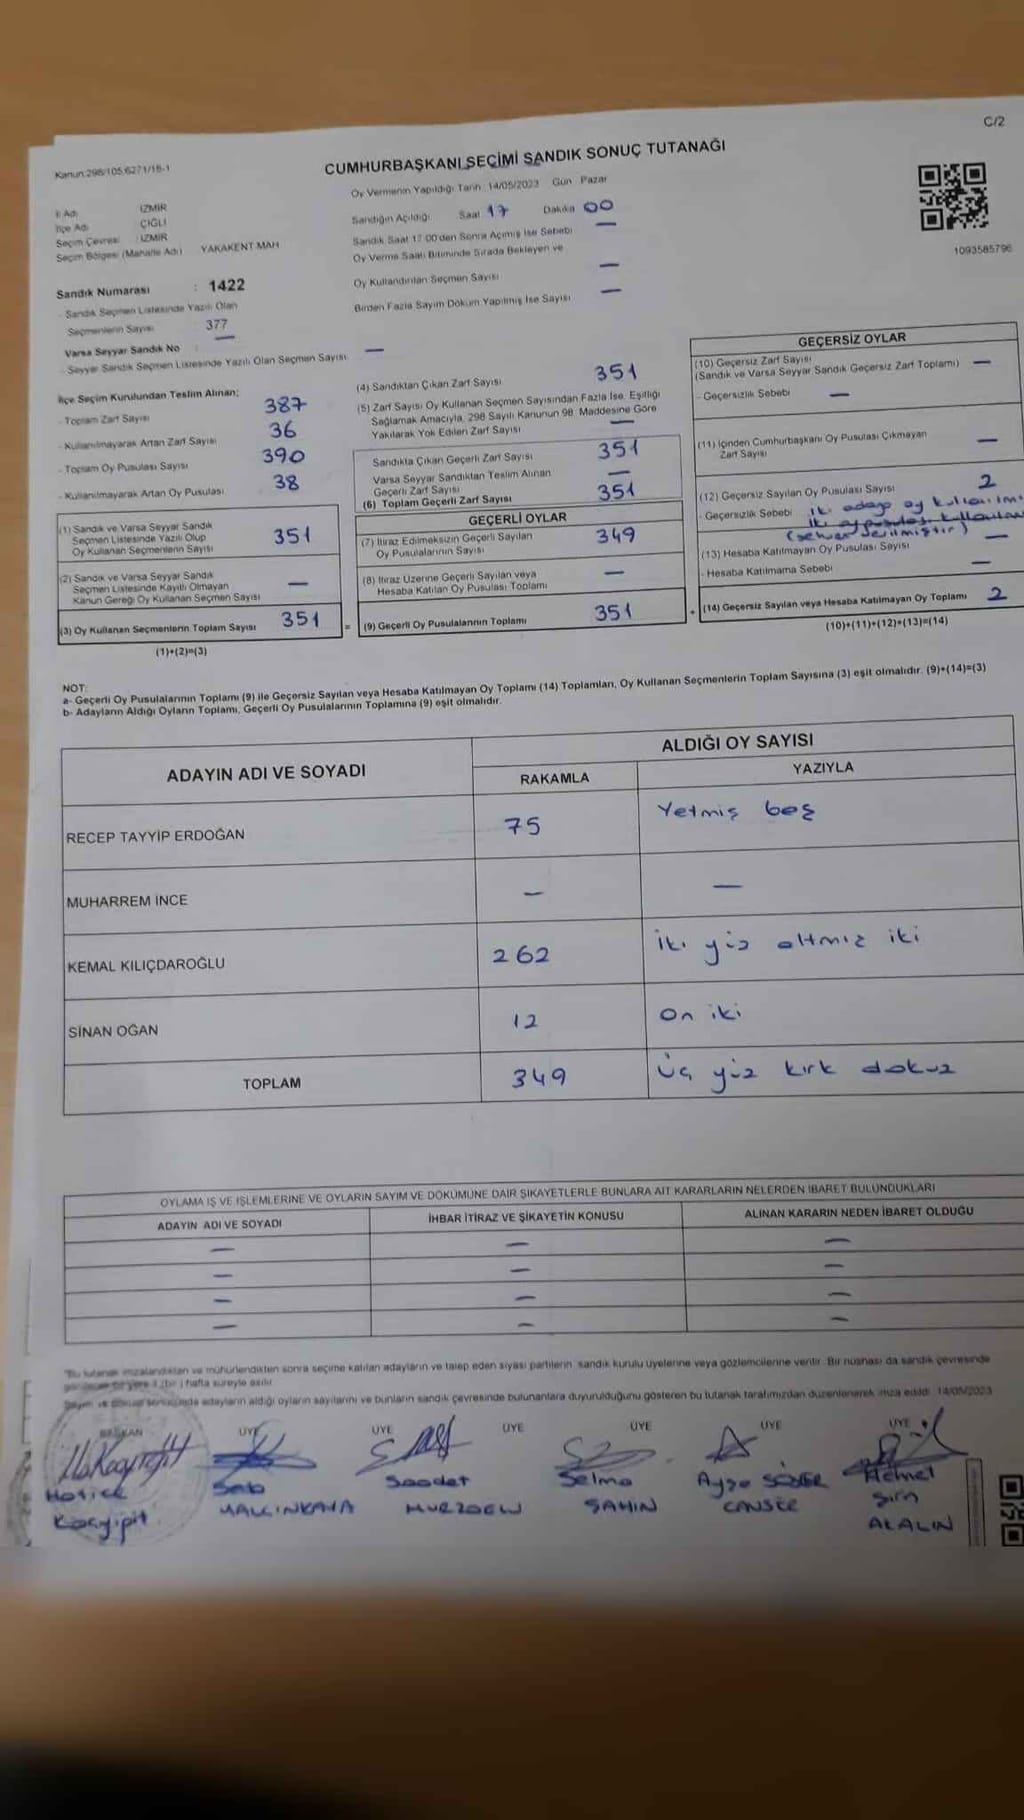 C/2
Kanun:298/105,6271/18-1
CUMHURBAŞKANI SEÇİMİ SANDIK SONUÇ TUTANAĞI
Oy Vermenin Yapıldığı Tarih 14/05/2023 Gün Pazar
İl Adı İZMİR
İlçe Adı ÇİĞLİ
Seçim Çevresi İZMİR
Seçim Bölgesi (Mahalle Adı) YAKAKENT MAH
Sandığın Açıldığı Saat 17 Dakika 00
Sandık Saat 17:00'den Sonra Açılmış İse Sebebi —
Oy Verme Saati Bitiminde Sırada Bekleyen ve
Oy Kullandırılan Seçmen Sayısı —
Birden Fazla Sayım Döküm Yapılmış İse Sayısı —
1093585796
Sandık Numarası : 1422
- Sandık Seçmen Listesinde Yazılı Olan
Seçmenlerin Sayısı 377
Varsa Seyyar Sandık No —
- Seyyar Sandık Seçmen Listesinde Yazılı Olan Seçmen Sayısı —
İlçe Seçim Kurulundan Teslim Alınan;
- Toplam Zarf Sayısı 387
- Kullanılmayarak Artan Zarf Sayısı 36
- Toplam Oy Pusulası Sayısı 390
- Kullanılmayarak Artan Oy Pusulası 38
(1) Sandık ve Varsa Seyyar Sandık
Seçmen Listesinde Yazılı Olup
Oy Kullanan Seçmenlerin Sayısı 351
(2) Sandık ve Varsa Seyyar Sandık
Seçmen Listesinde Kayıtlı Olmayan
Kanun Gereği Oy Kullanan Seçmen Sayısı —
(3) Oy Kullanan Seçmenlerin Toplam Sayısı 351
(1)+(2)=(3)
(4) Sandıktan Çıkan Zarf Sayısı 351
(5) Zarf Sayısı Oy Kullanan Seçmen Sayısından Fazla İse, Eşitliği
Sağlamak Amacıyla, 298 Sayılı Kanunun 98. Maddesine Göre
Yakılarak Yok Edilen Zarf Sayısı —
Sandıkta Çıkan Geçerli Zarf Sayısı 351
Varsa Seyyar Sandıktan Teslim Alınan
Geçerli Zarf Sayısı —
(6) Toplam Geçerli Zarf Sayısı 351
GEÇERLİ OYLAR
(7) İtiraz Edilmeksizin Geçerli Sayılan
Oy Pusulalarının Sayısı 349
(8) İtiraz Üzerine Geçerli Sayılan veya
Hesaba Katılan Oy Pusulası Toplamı —
= (9) Geçerli Oy Pusulalarının Toplamı 351
GEÇERSİZ OYLAR
(10) Geçersiz Zarf Sayısı
(Sandık ve Varsa Seyyar Sandık Geçersiz Zarf Toplamı) —
- Geçersizlik Sebebi —
(11) İçinden Cumhurbaşkanı Oy Pusulası Çıkmayan
Zarf Sayısı —
(12) Geçersiz Sayılan Oy Pusulası Sayısı 2
- Geçersizlik Sebebi iki adaya oy
iki
(sehven verilmiştir)
(13) Hesaba Katılmayan Oy Pusulası Sayısı —
- Hesaba Katılmama Sebebi —
+ (14) Geçersiz Sayılan veya Hesaba Katılmayan Oy Toplamı 2
(10)+(11)+(12)+(13)=(14)
NOT:
a- Geçerli Oy Pusulalarının Toplamı (9) ile Geçersiz Sayılan veya Hesaba Katılmayan Oy Toplamı (14) Toplamları, Oy Kullanan Seçmenlerin Toplam Sayısına (3) eşit olmalıdır. (9)+(14)=(3)
b- Adayların Aldığı Oyların Toplamı, Geçerli Oy Pusulalarının Toplamına (9) eşit olmalıdır.
ADAYIN ADI VE SOYADI
ALDIĞI OY SAYISI
RAKAMLA YAZIYLA
RECEP TAYYİP ERDOĞAN 75 Yetmiş beş
MUHARREM İNCE — —
KEMAL KILIÇDAROĞLU 262 İki yüz altmız iki
SİNAN OĞAN 12 On iki
TOPLAM 349 Üç yüz kırk dokuz
OYLAMA İŞ VE İŞLEMLERİNE VE OYLARIN SAYIM VE DÖKÜMÜNE DAİR ŞİKAYETLERLE BUNLARA AİT KARARLARIN NELERDEN İBARET BULUNDUKLARI
ADAYIN ADI VE SOYADI İHBAR İTİRAZ VE ŞİKAYETİN KONUSU ALINAN KARARIN NEDEN İBARET OLDUĞU
— — —
— — —
— — —
— — —
"Bu tutanak imzalandıktan ve mühürlendikten sonra seçime katılan adayların ve talep eden siyasi partilerin, sandık kurulu üyelerine veya gözlemcilerine verilir. Bir nüshası da sandık çevresinde
görülecek bir yere 1 (bir) hafta süreyle asılır.
adayların aldığı oyların sayılarını ve bunların sandık çevresinde bulunanlara duyurulduğunu gösteren bu tutanak tarafımızdan düzenlenerek imza edildi. 14/05/2023
BAŞKAN ÜYE ÜYE ÜYE ÜYE ÜYE ÜYE
Hatice Saadet Selma Ayşe
Koçyiğit YALÇINKAYA ŞAHİN